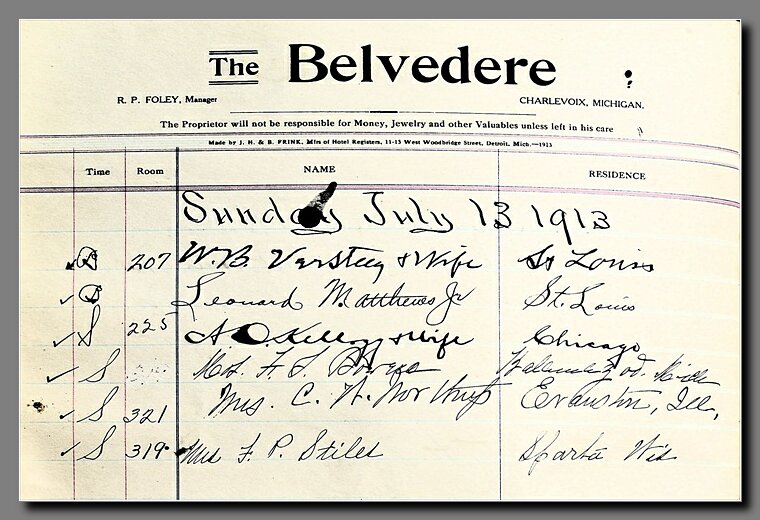 The Belvedere
R. P. FOLEY, Manager CHARLEVOIX, MICHIGAN.
The Proprietor will not be responsible for Money, Jewelry and other Valuables unless left in his care
Made by J. H. & B. FRINK, Mfrs of Hotel Registers, 11-13 West Woodbridge Street, Detroit, Mich.—1913
Time Room NAME RESIDENCE
Sunday July 13 1913
B 207 W.B. Versteeg & Wife St Louis
B Leonard Matthews Jr St. Louis
S 225 A O Kellogg & Wife Chicago
S Mrs. F. S. Bowers
S 321 Mrs. C. H. Northup Evanston, Ill,
S 319 Mrs F. P. Stiles Sparta Wis